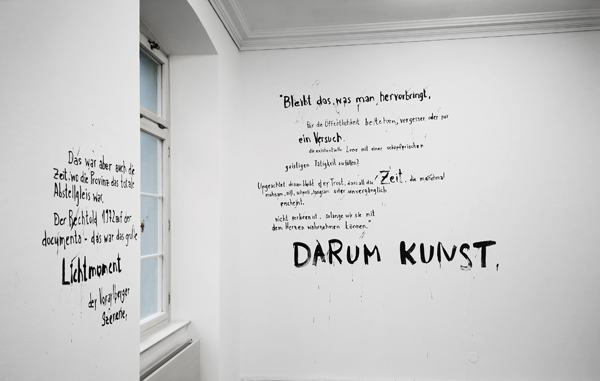 Das war aber auch die
Zeit, wo die Provinz das totale
Abstellgleis war.
Der Bechtold 1972 auf der
documenta - das war das große
Lichtmoment
der Vorarlberger
Szenerie,
"Bleibt das, was man hervorbringt,
für die Öffentlichkeit bestehen, vergessen oder nur
ein Versuch
die existentielle Leere mit einer schöpferischen
geistigen Tätigkeit zu füllen?
Ungeachtet dessen bleibt der Trost, dass all die Zeit, die manchmal
mühsam, oder unvergänglich
erscheint,
nicht verloren ist, solange wir sie mit
dem Herzen wahrnehmen können."
DARUM KUNST,